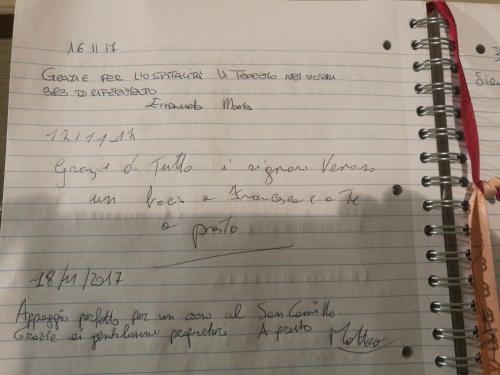 16 11 17
GRAZIE PER L'OSPITALITÀ VI TERREMO NEI NOSTRI
B&B DI RIFERIMENTO
Emanuela Maria
17/11/17
Grazie di Tutto i signori
un bacio a Francesca e a Te
a presto
18/11/2017
Appoggio perfetto per un corso al San Camillo
Grazie ai gentilissimi proprietari A presto Matteo